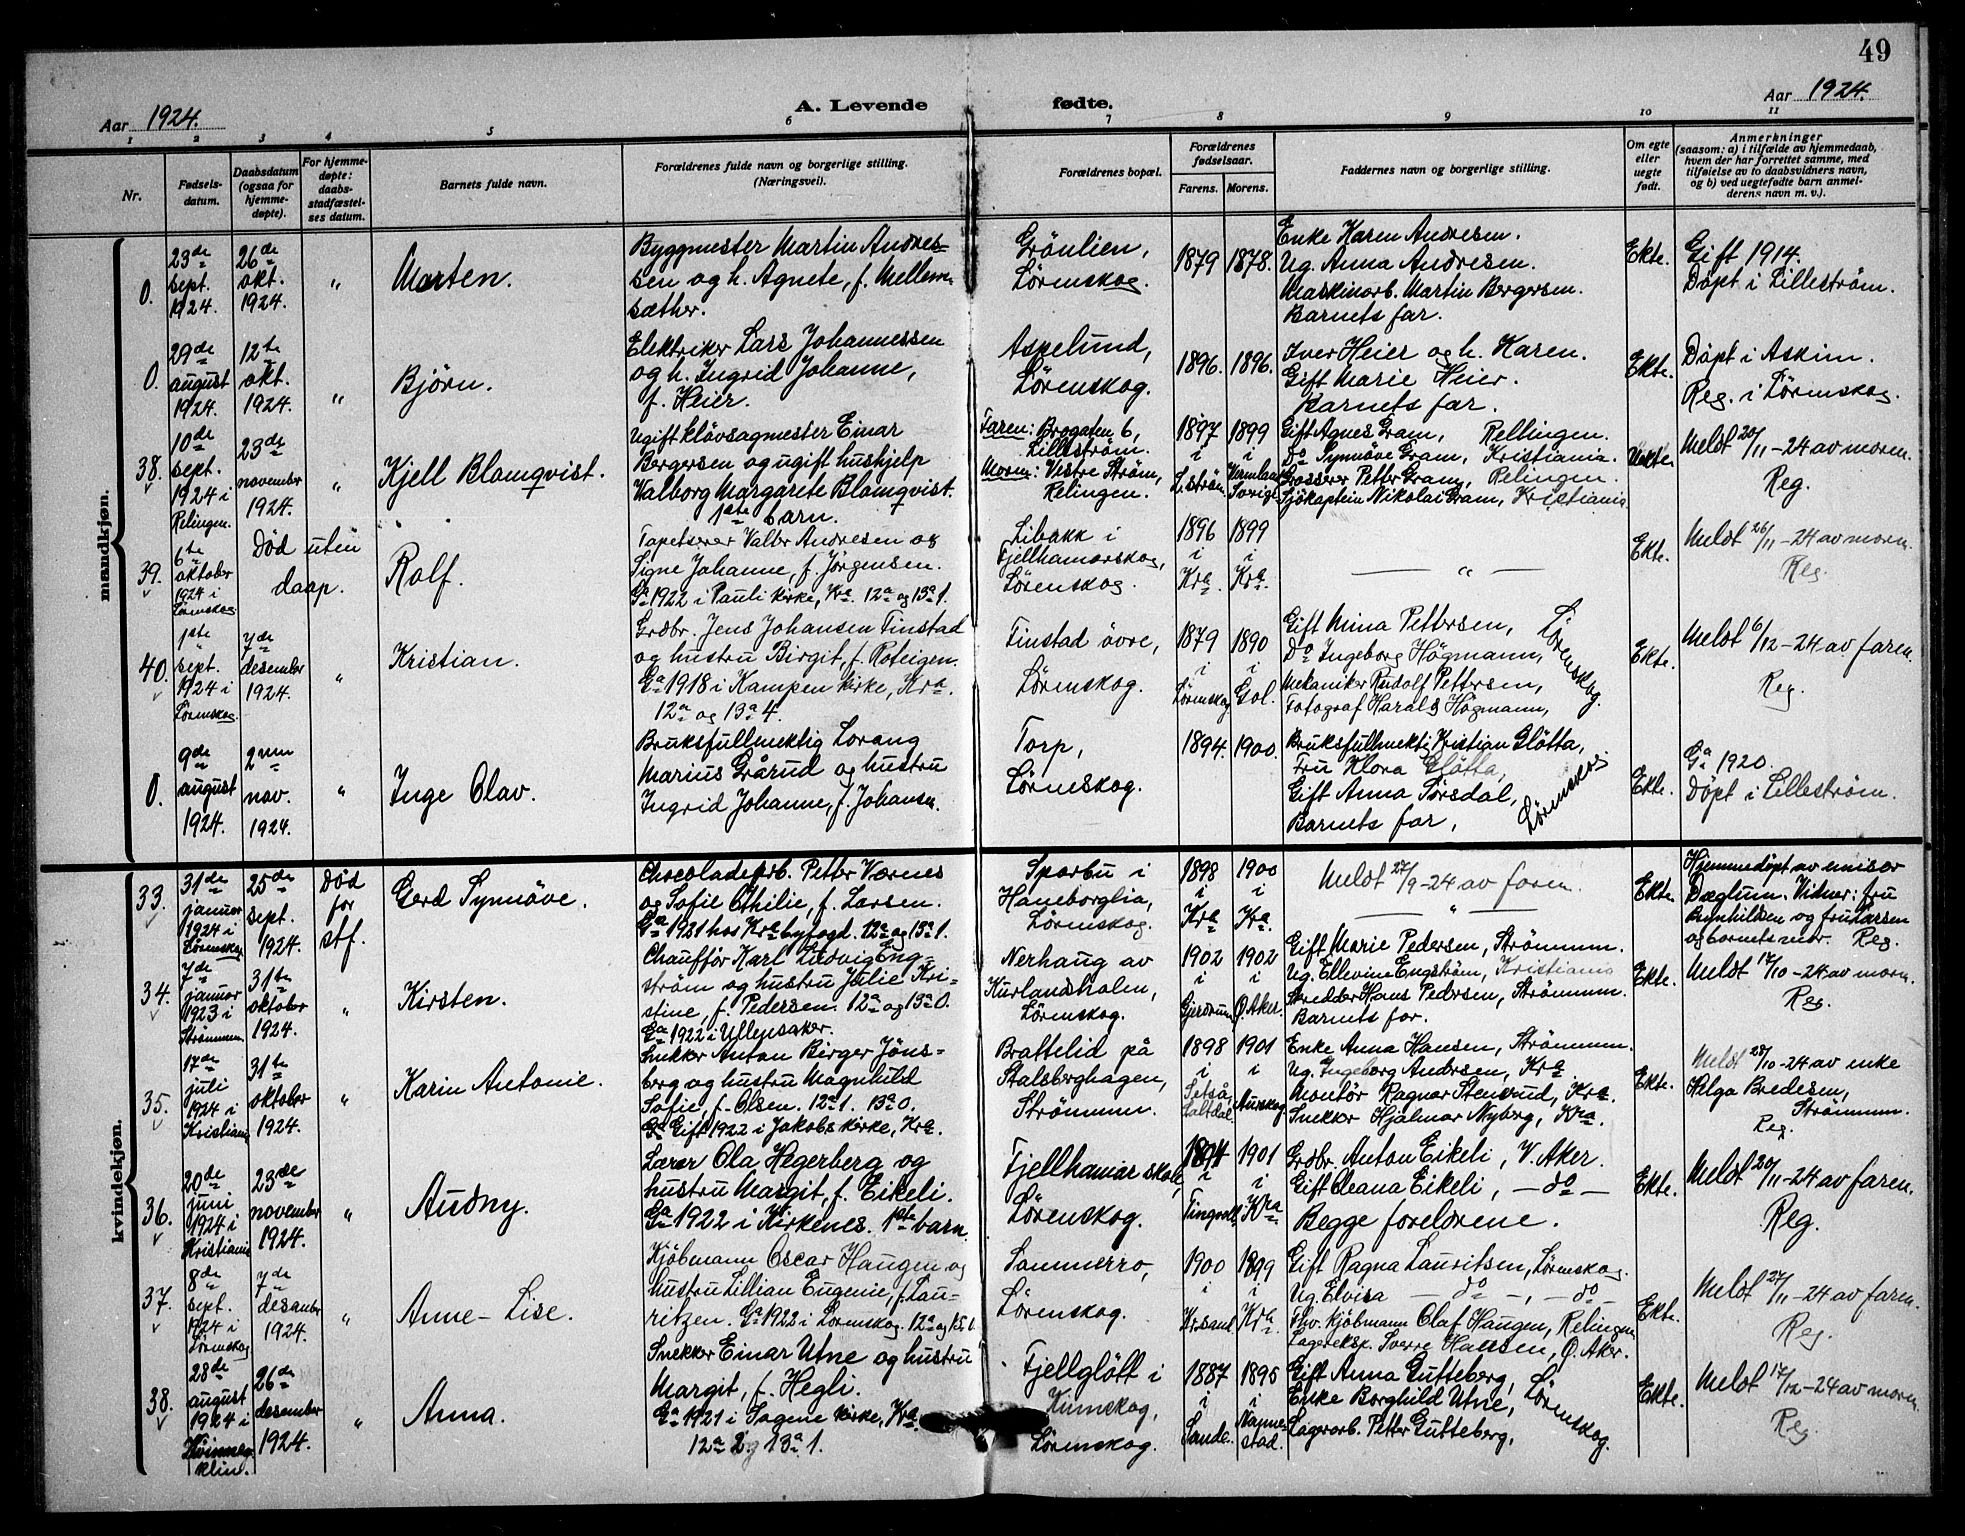 49
Aar 1924.
A. Levende fødte.
Aar 1924.
1 2 3 4 5 6 7 8 9 10 11
Nr.
Fødsels-
datum.
Daabsdatum
(ogsaa for
hjemme-
døpte).
For hjemme-
døpte:
daabs-
stadfæstel-
ses datum.
Barnets fulde navn.
Forældrenes fulde navn og borgerlige stilling.
(Næringsvei).
Forældrenes bopæl.
Forældrenes
fødselsaar.
Farens. Morens.
Faddernes navn og borgerlige stilling.
Om egte
eller
uegte
født.
Anmerkninger
(saasom: a) i tilfælde av hjemmedaab,
hvem der har forrettet samme, med
tilføielse av to daabsvidners navn,
og b) ved uegtefødte barn anmel-
derens navn m. v.).
mandkjøn.
0.
23de
sept.
1924.
26de
okt.
1924.
"
Marten.
Byggmester Martin Andre-
sen og h. Agnete, f. Mellem-
sæther.
Grönlien,
Lørenskog.
1879 1878.
Enke Karen Andresen.
Ug. Anna Andresen.
Maskinarb. Martin Bergersen.
Barnets far.
Ekte.
Gift 1914.
Döpt i Lilleström.
0.
29de
august
1924.
12te
okt.
1924.
"
Bjørn.
Elektriker Lars Johannessen
og h. Ingrid Johanne,
f. Heier.
Aspelund,
Lørenskog.
1896. 1896.
Iver Heier og h. Karen.
Gift Marie Heier.
Barnets far.
Ekte.
Döpt i Askim.
Reg. i Lørenskog.
38.
10de
sept.
1924 i
Relingen.
23de
november
1924.
"
Kjell Blomqvist.
Ugift klövsagmester Einar
Bergersen og ugift hushjelp
Valborg Margarete Blomqvist.
1ste barn.
Faren: Brogaten 6,
Lilleström.
Moren: Vestre Ström,
Relingen.
1897
i
L.ström
1899
i
Vermland
Sverige
Gift Agnes Gram, Rellingen.
Do Synnöve Gram, Kristiania.
Grosserer Petter Gram, Relingen.
Sjökaptein Nikolai Gram, Kristiania
Uekte.
Meldt 20/11-24 av moren.
Reg.
39.
6te
oktober
1924 i
Lørenskog
Död uten
daap.
Rolf.
Tapetserer Valter Andresen og
Signe Johanne, f. Jørgensen.
Ga 1922 i Pauli kirke, Kra. 12a og 13a 1.
Libakk i
Fjellhamarskog,
Lørenskog.
1896
i
Kra.
1899
i
Kra.
— " —
Ekte.
Meldt 26/11-24 av moren.
Reg.
40.
1ste
sept.
1924 i
Lørenskog
7de
desember
1924.
"
Kristian.
Grdbr. Jens Johansen Finstad
og hustru Birgit, f. Roteigen.
Ga 1918 i Kampen kirke, Kra.
12a og 13a 4.
Finstad övre,
Lørenskog.
1879
i
Lørenskog
1890
i
Gol.
Gift Mina Pettersen,
Do Ingeborg Högmann,
Mekaniker Rudolf Pettersen,
Fotograf Harald Högmann,
Lørenskog.
Ekte.
Meldt 6/12-24 av faren.
Reg.
0.
9de
august
1924.
2nen
nov.
1924.
"
Inge Olav.
Bruksfullmektig Lorang
Marius Grårud og hustru
Ingrid Johanne, f. Johansen.
Torp,
Lørenskog.
1894. 1900.
Bruksfullmektig Kristian Glötta,
Fru Klora Glötta,
Gift Anna Sørsdal,
Barnets far,
Lørenskog
Ekte.
Ga 1920.
Döpt i Lilleström.
kvindekjøn.
33.
31de
januar
1924 i
Lørenskog
25de
sept.
1924.
Död
for
stf.
Gerd Synnöve.
Chocoladearb. Petter Værnes
og Sofie Othilie, f. Larsen.
Ga 1921 hos Kra byfogd. 12a og 13a 1.
Sparbu i
Haneborglia,
Lørenskog.
1898
i
Kra
1900
i
Kra.
Meldt 27/9-24 av faren.
— " —
Ekte.
Hjemmedöpt av emissær
Dæglum. Vidner: fru
Brynhildsen og fru Larsen
og barnets mor. Reg.
34.
7de
januar
1923 i
Strömmen
31te
oktober
1924.
"
Kirsten.
Chauffør Karl Ludvig Eng-
ström og hustru Julie Kri-
stine, f. Pedersen. 12a og 13a 0.
Ga 1922 i Ullensaker.
Nerhaug av
Kurlandsdalen,
Lørenskog.
1902
i
Gjerdrum
1902
i
Ø. Aker.
Gift Marie Pedersen, Strömmen.
Ug. Ellevine Engström, Kristiania
Skredder Hans Pedersen, Strömmen.
Barnets far.
Ekte.
Meldt 17/10-24 av moren.
Reg.
35.
17de
juli
1924 i
Kristiania
31te
oktober
1924.
"
Karin Antonie.
Snekker Anton Birger Jöns-
berg og hustru Magnhild
Sofie, f. Olsen. 12a 1. 13a 0.
Ga Gift 1922 i Jakobs kirke, Kra.
Brattelid på
Stalsberghagen,
Strömmen.
1898
i
Setså,
Saltdal
1901
i
Aurskog
Enke Anna Hansen, Strömmen.
Ug. Ingeborg Andersen, Kra.
Montör Ragnar Stensrud, Kra.
Snekker Hjalmar Nyberg, Kra.
Ekte.
Meldt 28/10-24 av enke
Helga Bredesen,
Strömmen.
Reg.
36.
20de
juni
1924 i
Kristiania
23de
november
1924.
"
Audny.
Lærer Ola Hegerberg og
hustru Margit, f. Eikeli.
Ga 1922 i Kirkenes. 1ste barn.
Fjellhamar skole,
Lørenskog.
1894
i
Tingvoll
1901
i
Kra
Grdbr. Anton Eikeli, V. Aker.
Gift Oleana Eikeli, — do —
Begge foreldrene.
Ekte.
Meldt 20/11-24 av faren.
Reg.
37.
8de
sept.
1924 i
Lørenskog
7de
desember
1924.
"
Anne-Lise.
Kjöbmann Oscar Haugen og
hustru Lillian Eugenie, f. Lau-
ritzen. Ga 1922 i Lørenskog. 12a og 13a 0.
Sommerro,
Lørenskog.
1900
i
Kr.sand
1899
i
Kra.
Gift Ragna Lauritsen, Lørenskog.
Ug. Elvisa — do —, — do —
Fhv. kjöbmann Olaf Haugen, Relingen
Lagereksp. Sverre Hansen, Ø. Aker.
Ekte.
Meldt 27/11-24 av faren.
Reg.
38.
28de
august
1924 i
Kvinneklin.
26de
desember
1924.
"
Anna.
Snekker Einar Utne og hustru
Margit, f. Hegli.
Ga 1921 i Sagene kirke, Kra.
12a 2 og 13a 1.
Fjellglött i
Kunnskog,
Lørenskog.
1887
i
Sande.
1895
i
Nannestad.
Gift Anna Gutteberg,
Enke Borghild Utne,
Lagerarb. Petter Gutteberg,
Lørenskog.
Ekte.
Meldt 17/12-24 av moren
Reg.